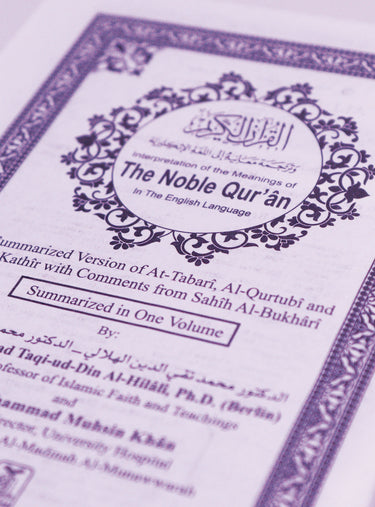 القرآن الكريم
وترجمة معانيه إلى اللغة الإنجليزية
Interpretation of the Meanings of
The Noble Qur'ân
In The English Language
Summarized Version of At-Tabarî, Al-Qurtubî and
Kathîr with Comments from Sahîh Al-Bukhârî
Summarized in One Volume
By:
الدكتور محمد تقي الدين الهلالي - الدكتور محمد
Taqi-ud-Dîn Al-Hilâlî, Ph.D. (Berlin)
of Islamic Faith and Teachings
and
Muhsin Khân
University Hospital
Al-Madinah Al-Munawwarah